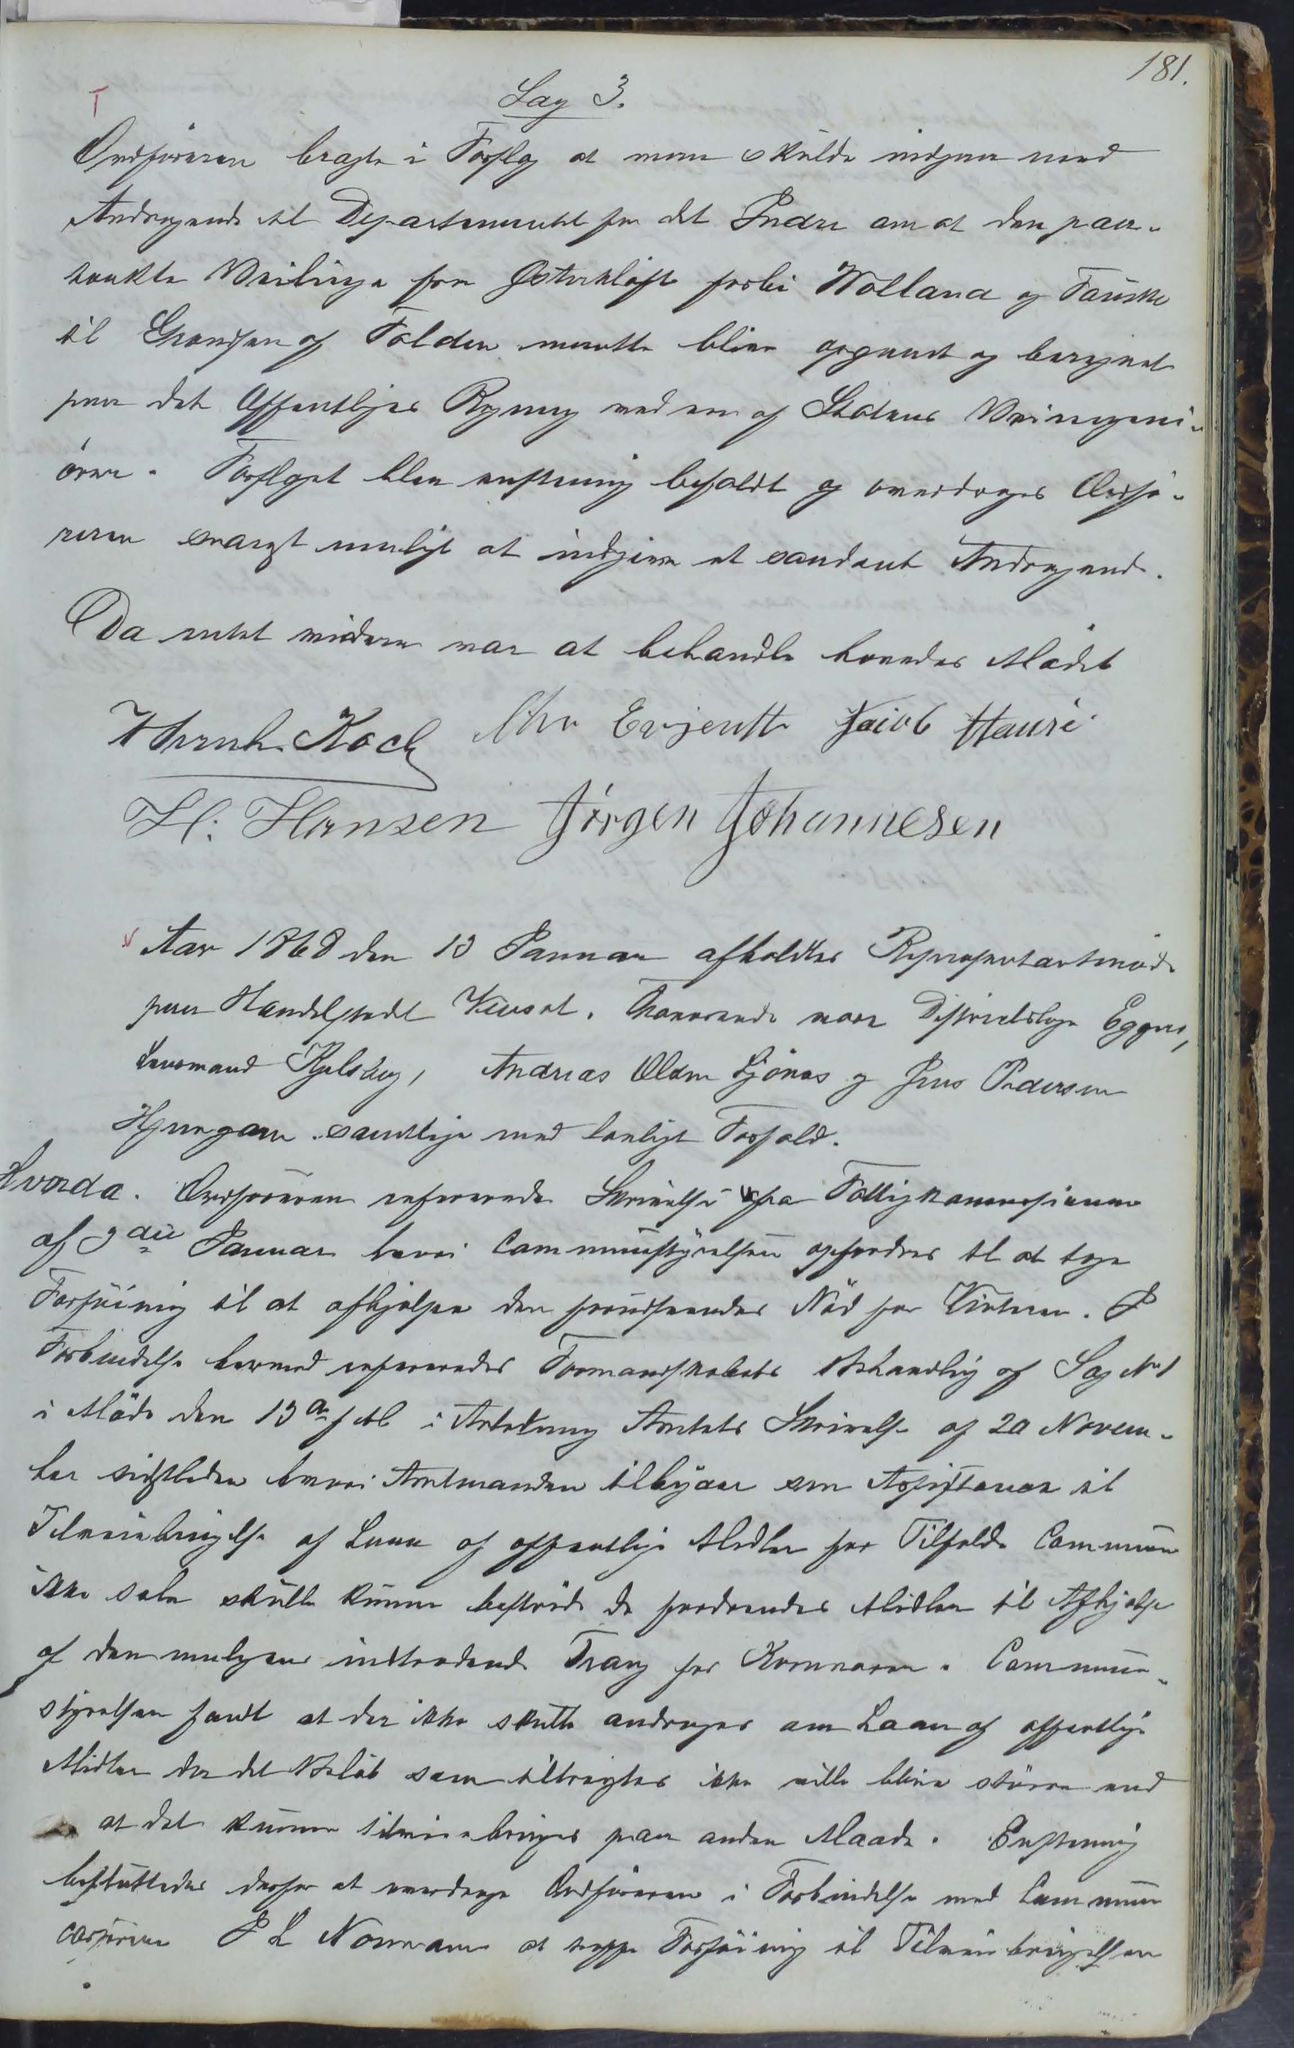 181.
Sag 3.
Ordføreren bragte i Forslag at man skulde indgaa med
Andragende til Departementet for det Indre om at den paa-
tænkte Veilinge fra Østerkløft forbi Wolland og Fauske
til Grændsen af Folden maatte blive opgaaet og beregnet
paa det Offentliges Regning ved en af Statens Veiingeni-
örer. Forslaget blev enstemmig bifaldt og overdroges Ordfö-
reren snarest muligt at indgive et saadant Andragende.
Da intet videre var at behandle hævedes Mødet
Koch Chr Evjenth Jacob Hansé
H: Hansen Jörgen Johannesen
Aar 1868 den 13 Januar afholdtes Repræsentantmöde
paa Handelstedet Venset. Fraværende vare Districtslæge Eggen,
Lensmand Kjelsberg, Andreas Olsen Sjönes og Jens Pedersen
samtlige med lovligt Forfald.
Hvorda. Ordföreren refererede Skrivelse fra Fattigkommissionen
af 9de Januar hvori Communestyrelsen opfordres til at tage
Forföining til at afhjælpe den forestaaende Nöd for Vinteren. I
Forbindelse hermed refereredes Formandskabets Behandling af Sag No 1
i Möde den 13de f M. i Anledning Amtets Skrivelse af 20 Novem-
ber sidstleden hvori Amtmanden tilbyder sin Assistance til
Tilveiebringelse af Laan af offentlige Midler for Tilfælde Communen
ikke selv skulle kunne bestride de fornødne Midler til Afhjælpe
af den muligens indtrædende Trang for Kornvarer. Commune-
styrelsen fandt at der ikke skulle andrages om Laan af offentlige
Midler da det Belöb som tiltrængtes ikke ville blive större end
at det kunne tilveiebringes paa anden Maade. Enstemmig
besluttedes derfor at overdrage Ordföreren i Forbindelse med Commune
casserer P L Normann at træffe Forföining til Tilveiebringelsen